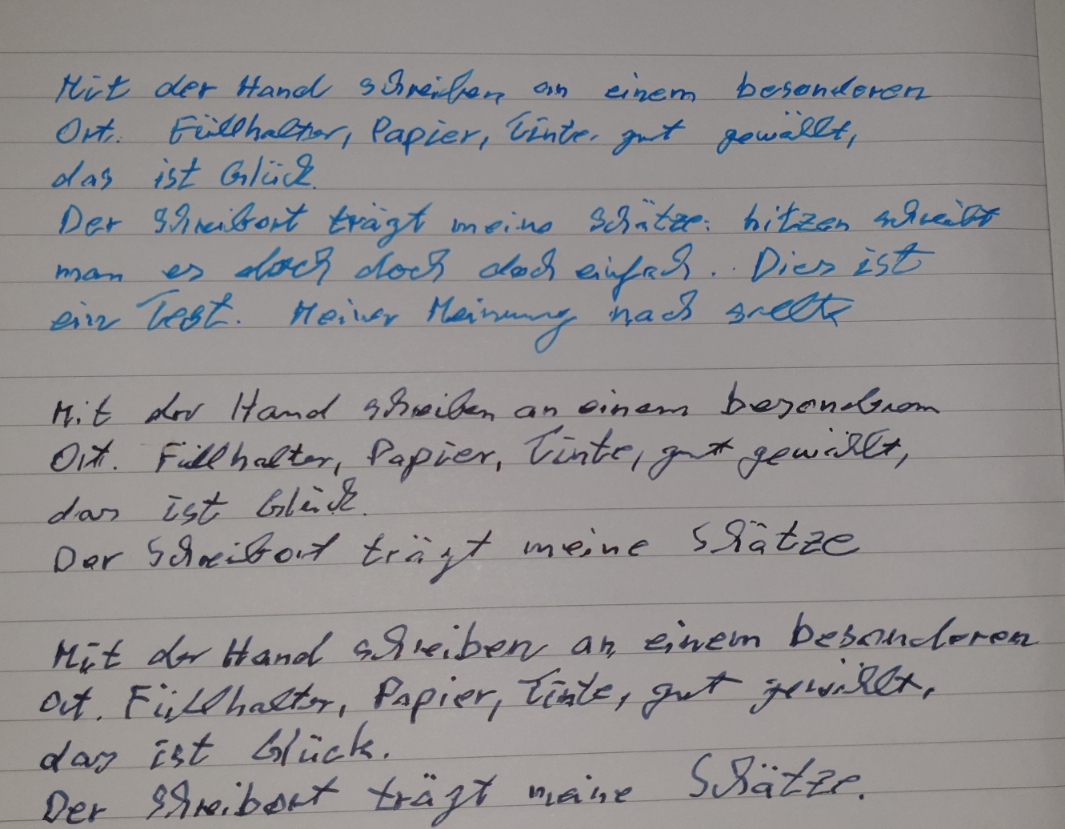 Mit der Hand schreiben an einem besonderen
Ort. Füllhalter, Papier, Tinte, gut gewällt,
das ist Glück.
Der Schreibort trägt meine Schätze. hitzen schreibt
man es doch doch doch einfach. Dies ist
ein Test. Meiner Meinung nach sollte
Mit der Hand schreiben an einem besonderem
Ort. Füllhalter, Papier, Tinte, gut gewählt,
das ist Glück.
Der Schreibort trägt meine Schätze
Mit der Hand schreiben an einem besonderen
Ort. Füllhalter, Papier, Tinte, gut gewählt,
das ist Glück.
Der Schreibort trägt meine Schätze.